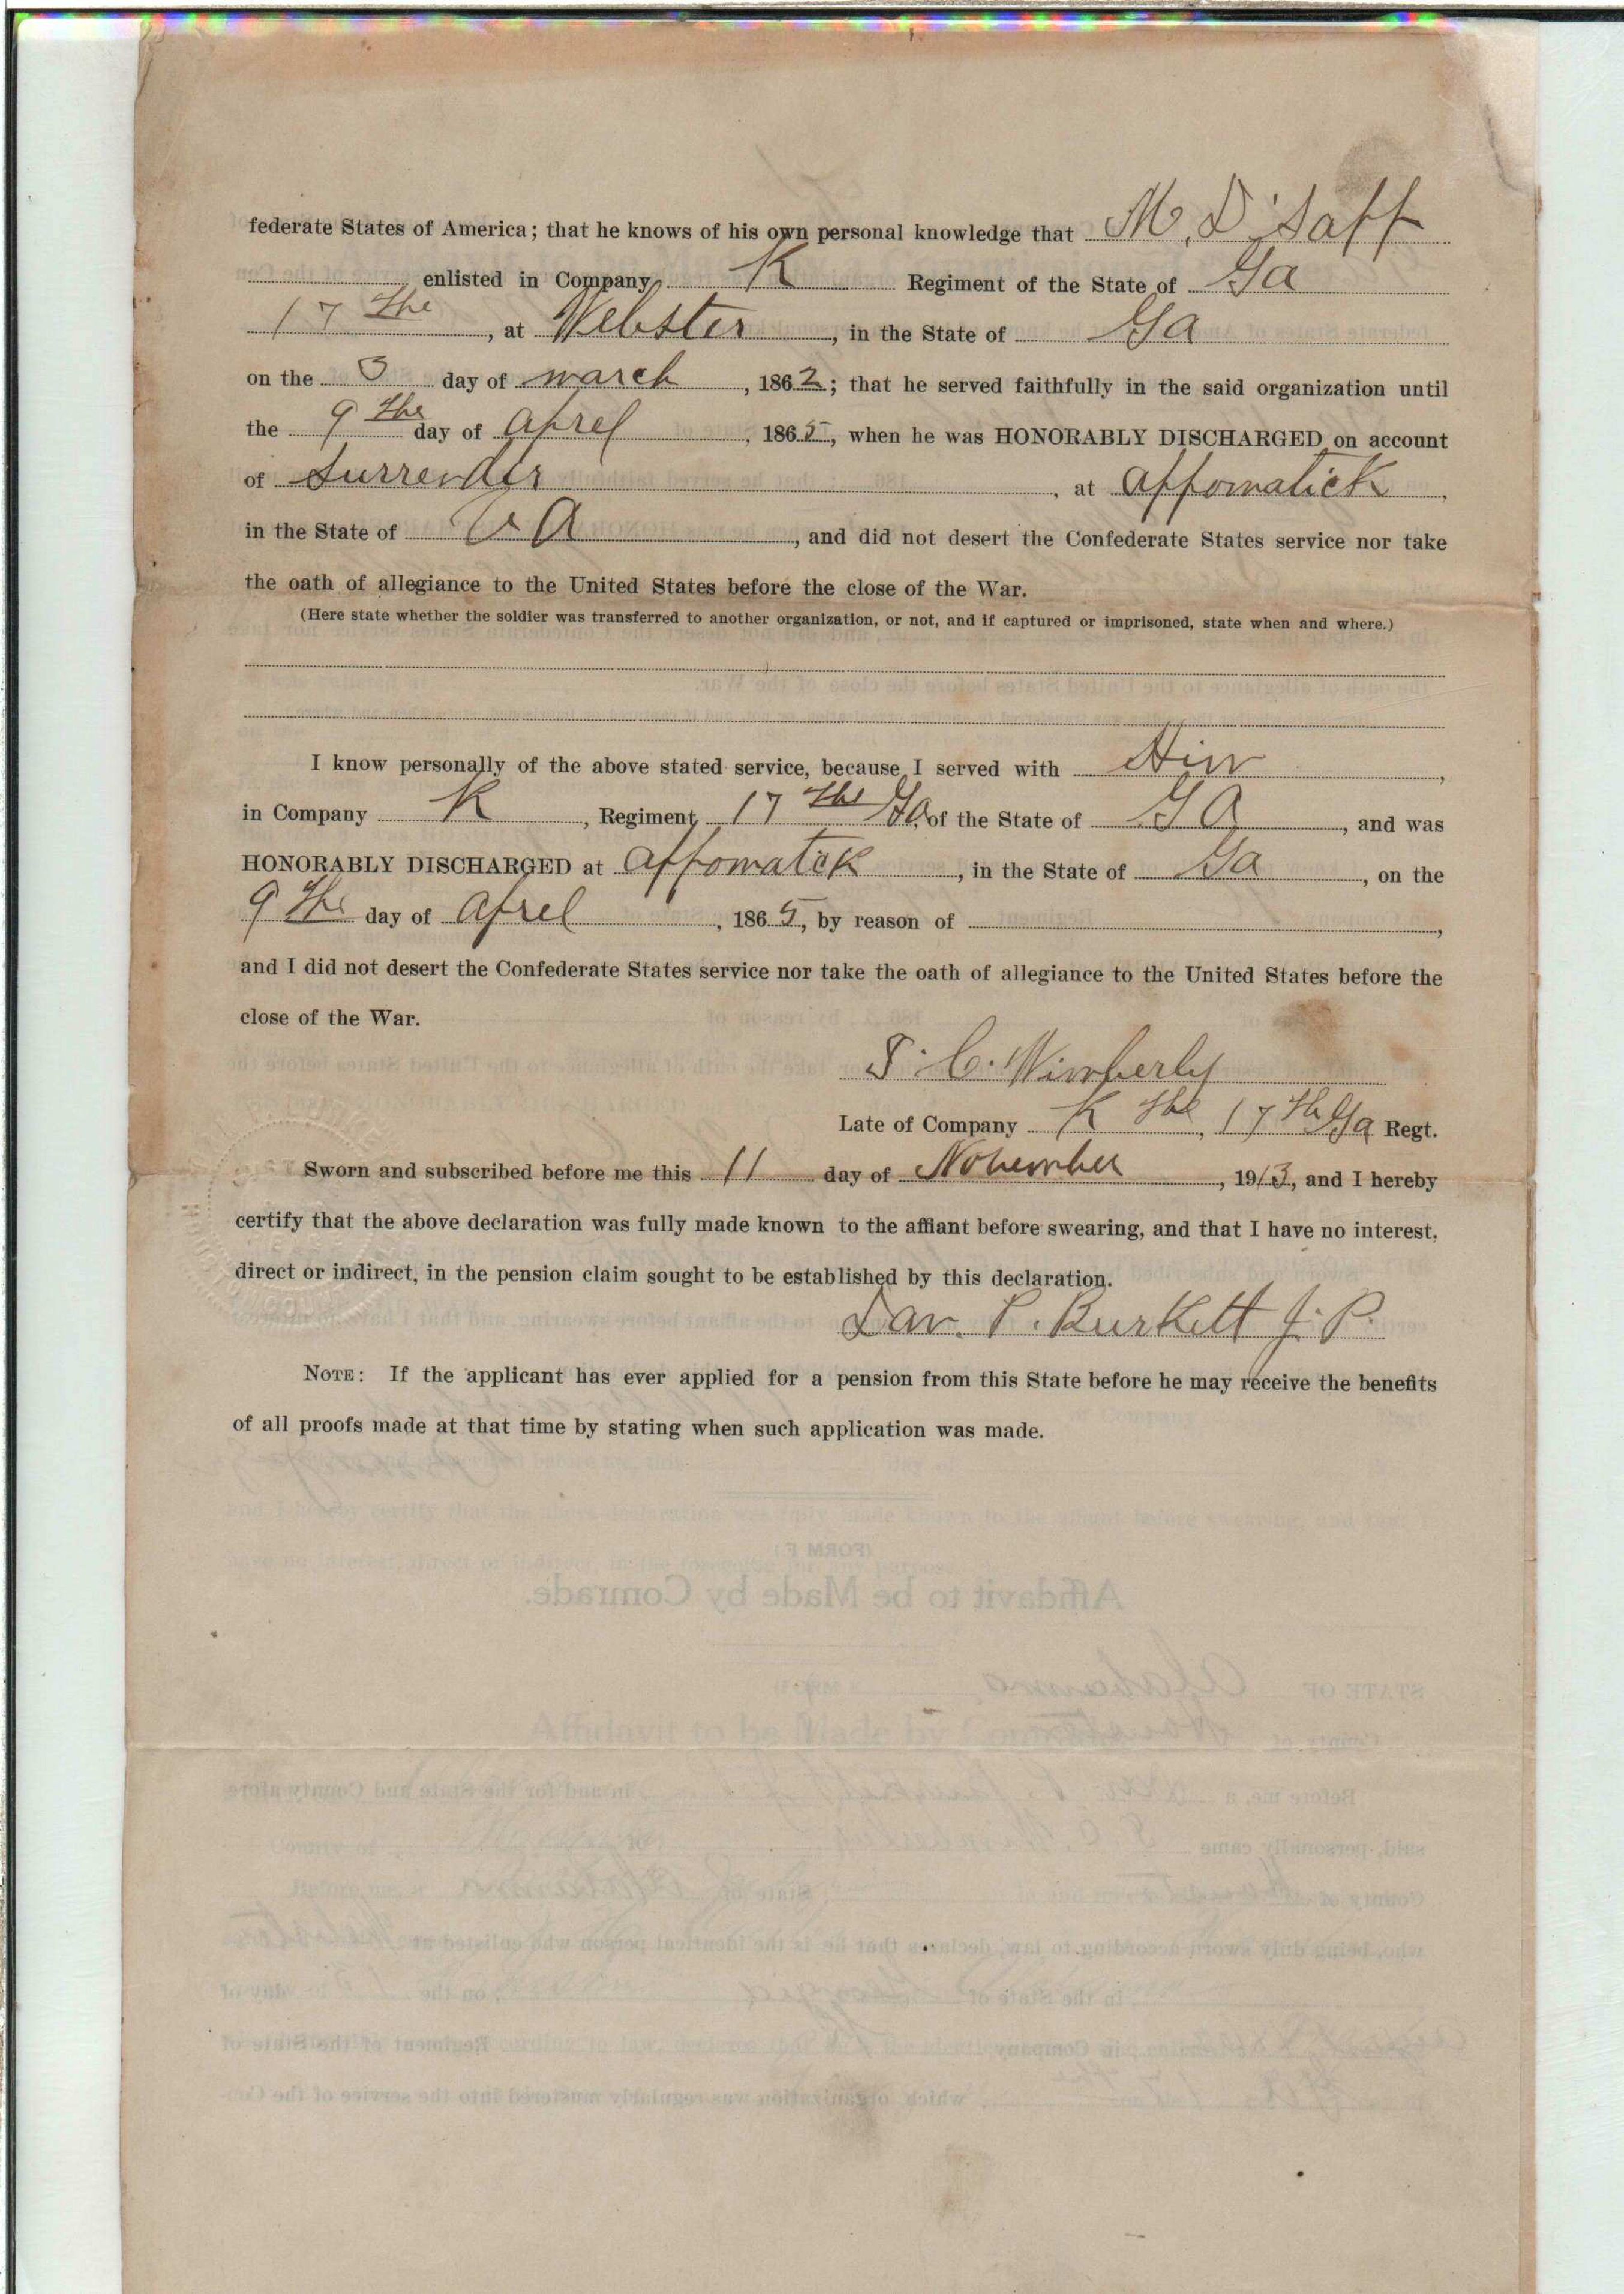 federate States of America; that he knows of his own personal knowledge that M. D. Saff
enlisted in Company K Regiment of the State of Ga
17 the, at Webster, in the State of Ga
on the 3 day of march, 1862; that he served faithfully in the said organization until
the 9 the day of aprel, 1865, when he was HONORABLY DISCHARGED on account
of Surrender, at appomatick,
in the State of Va, and did not desert the Confederate States service nor take
the oath of allegiance to the United States before the close of the War.
(Here state whether the soldier was transferred to another organization, or not, and if captured or imprisoned, state when and where.)
I know personally of the above stated service, because I served with Him,
in Company K, Regiment 17 the Ga of the State of GA, and was
HONORABLY DISCHARGED at appomatck, in the State of Ga, on the
9 the day of aprel, 1865, by reason of ,
and I did not desert the Confederate States service nor take the oath of allegiance to the United States before the
close of the War.
S. C. Wimberly
Late of Company K the, 17 th Ga Regt.
Sworn and subscribed before me this 11 day of November, 1913, and I hereby
certify that the above declaration was fully made known to the affiant before swearing, and that I have no interest,
direct or indirect, in the pension claim sought to be established by this declaration.
Dan. P. Burkett J. P.
NOTE: If the applicant has ever applied for a pension from this State before he may receive the benefits
of all proofs made at that time by stating when such application was made.